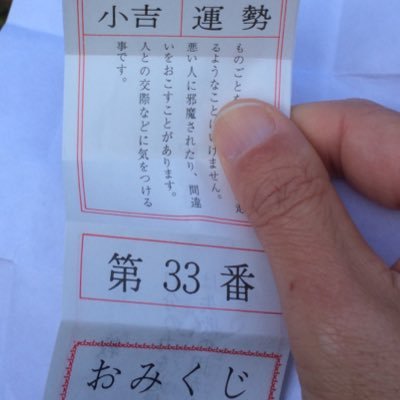 小吉 運勢
ものごと
るようなことはいけません。
悪い人に邪魔されたり、間違
いをおこすことがあります。
人との交際などに気をつける
事です。
第33番
おみくじ